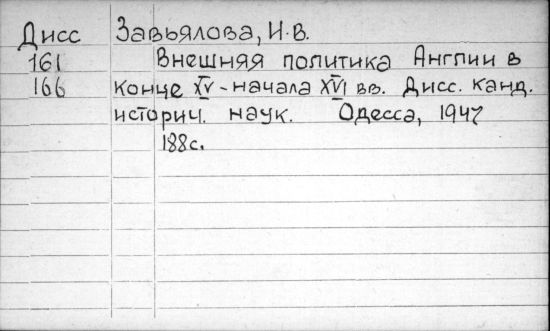 Дисс Завьялова, И.В.
161 Внешняя политика Англии в
166 конце XV - начала XVI вв. Дисс. канд.
историч. наук. Одесса, 1947
188 с.